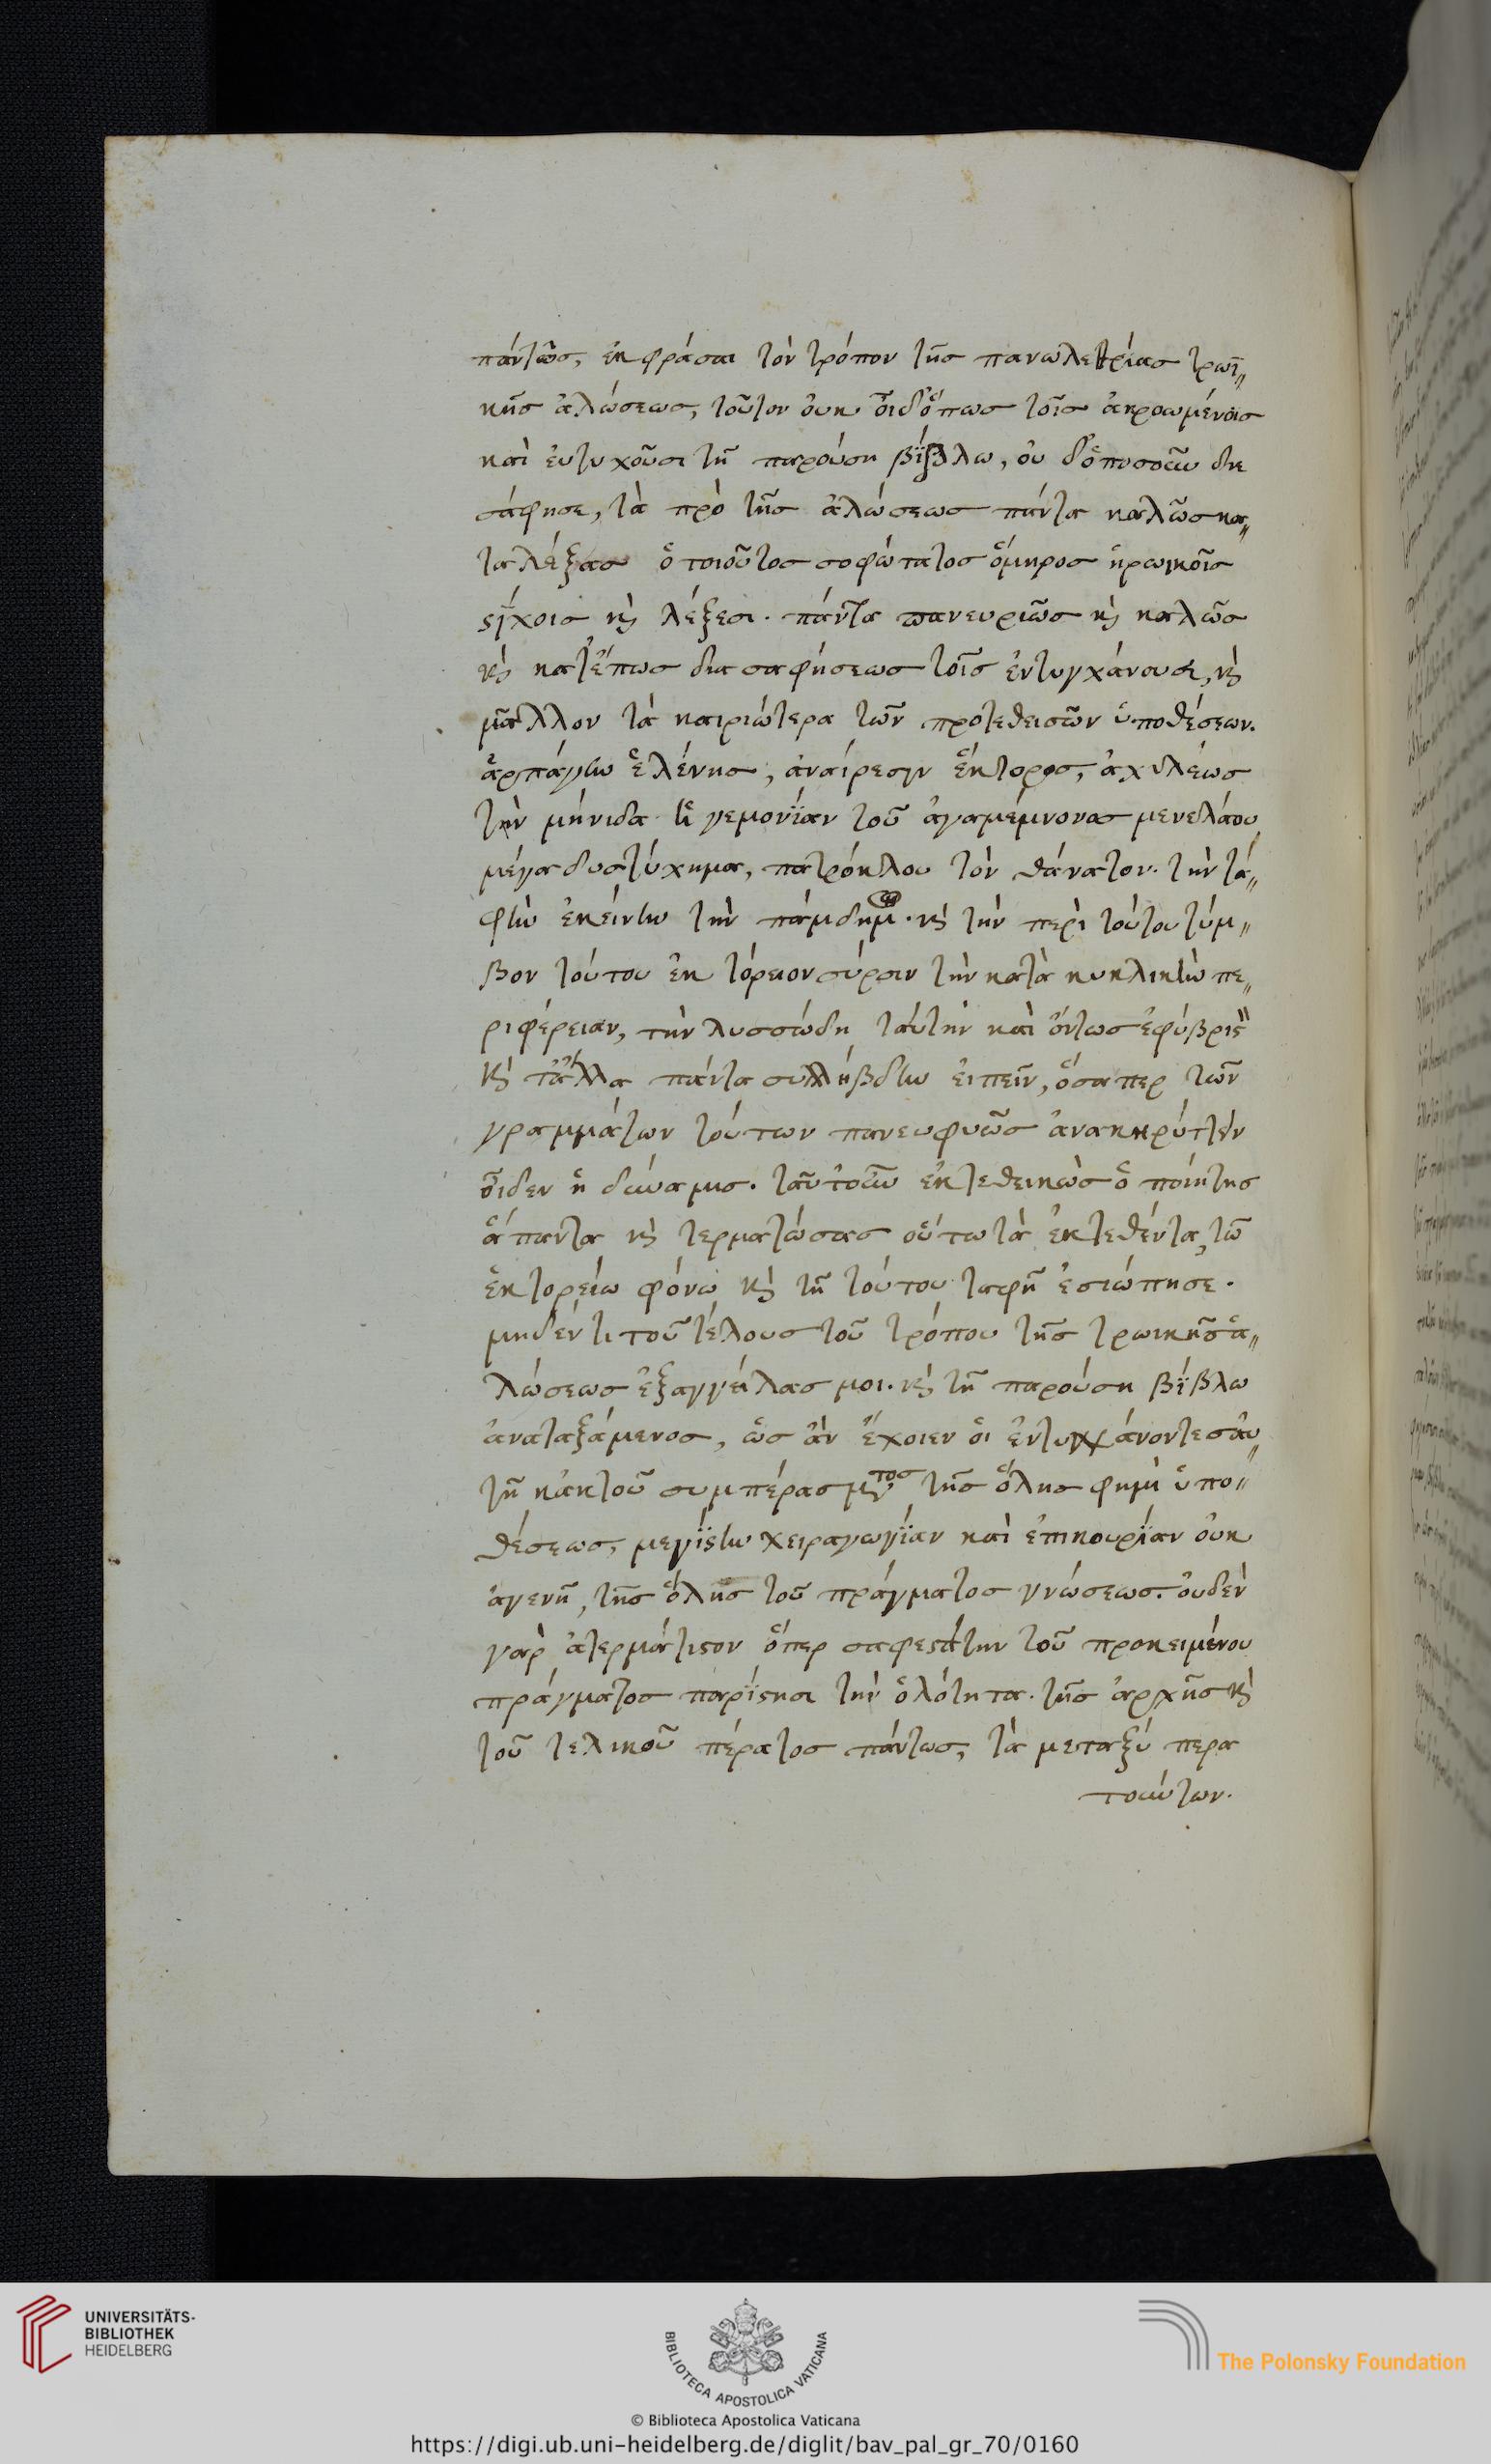 πάντως, ἐκφράσαι τὸν τρόπον τῆς πανωλεθρίας τρωϊ„
κῆς ἁλώσεως, τοῦτον οὐκ οἶδ᾽ ὅπως τοῖς ἀκροωμένοις
καὶ ἐντυχοῦσι τῇ παρούσῃ βίβλω, οὐ δ᾽ ὁποσοῦν διε
σάφησε, τὰ πρὸ τῆς ἁλώσεως πάντα καλῶς κα„
ταλέξας ὁ τοιοῦτος σοφώτατος ὅμηρος ἡρωικοῖς
στίχοις καὶ λέξεσι. πάντα καὶ καλῶς
καὶ κατέπως διασαφήσεως τοῖς ἐντυγχάνουσι, καὶ
μᾶλλον τὰ καιριώτερα τῶν προτεθεισῶν ὑποθέσεων.
ἁρπάγην ἑλένης, ἀναίρεσιν ἕκτορος, ἀχιλέως
τὴν μήνιδα ἡγεμονίαν τοῦ ἀγαμέμνονος μενελάου
μέγα δυστύχημα, πατρόκλου τὸν θάνατον. τὴν τά„
φην ἐκείνην τὴν πάμδημον. καὶ τὴν περὶ τούτου τύμ„
βον τούτου ἑκτόρειον σύρσιν τὴν κατὰ κυκλικὴν πε„
ριφέρειαν, τὴν λυσσώδη ταύτην καὶ ὄντως ἐφύβριστον
καὶ τἄλλα πάντα συλλήβδην εἰπεῖν, ὅσαπερ τῶν
γραμμάτων τούτων πανευφυῶς ἀνακηρύττειν
οἶδεν ἡ δύναμις. ταῦτ᾽ οὖν ἐκτεθεικὼς ὁ ποίητης
ἅπαντα καὶ τερματώσας οὕτω τὰ ἐκτεθέντα, τῶ
ἑκτορείω φόνω καὶ τῇ τούτου ταφῇ ἐσιώπησε.
μηδέν τι τοῦ τέλους τοῦ τρόπου τῆς τρωικῆς ἁ„
λώσεως ἐξαγγείλας μοι. καὶ τῇ παρούσῃ βίβλω
ἀναταξάμενος, ὡς ἂν ἔχοιεν οἱ ἐντυγχάνοντες αὐ„
τῇ κἀκ τοῦ συμπέρασματος τῆς ὅλης φημὶ ὑπο„
θέσεως, μεγίστην χειραγωγίαν καὶ ἐπικουρίαν οὐκ
ἀγενῆ, τῆς ὅλης τοῦ πράγματος γνώσεως. οὐδὲν
γὰρ ἀτερμάτιστον ὅπερ σαφεστάτην τοῦ προκειμένου
πράγματος παρίστησι τὴν ὁλότητα. τῆς ἀρχῆς καὶ
τοῦ τελικοῦ πέρατος πάντως, τὰ μεταξύ περα
τούντων.
UNIVERSITÄTS-
BIBLIOTHEK
HEIDELBERG
BIBLIOTECA APOSTOLICA VATICANA
The Polonsky Foundation
© Biblioteca Apostolica Vaticana
https://digi.ub.uni-heidelberg.de/diglit/bav_pal_gr_70/0160